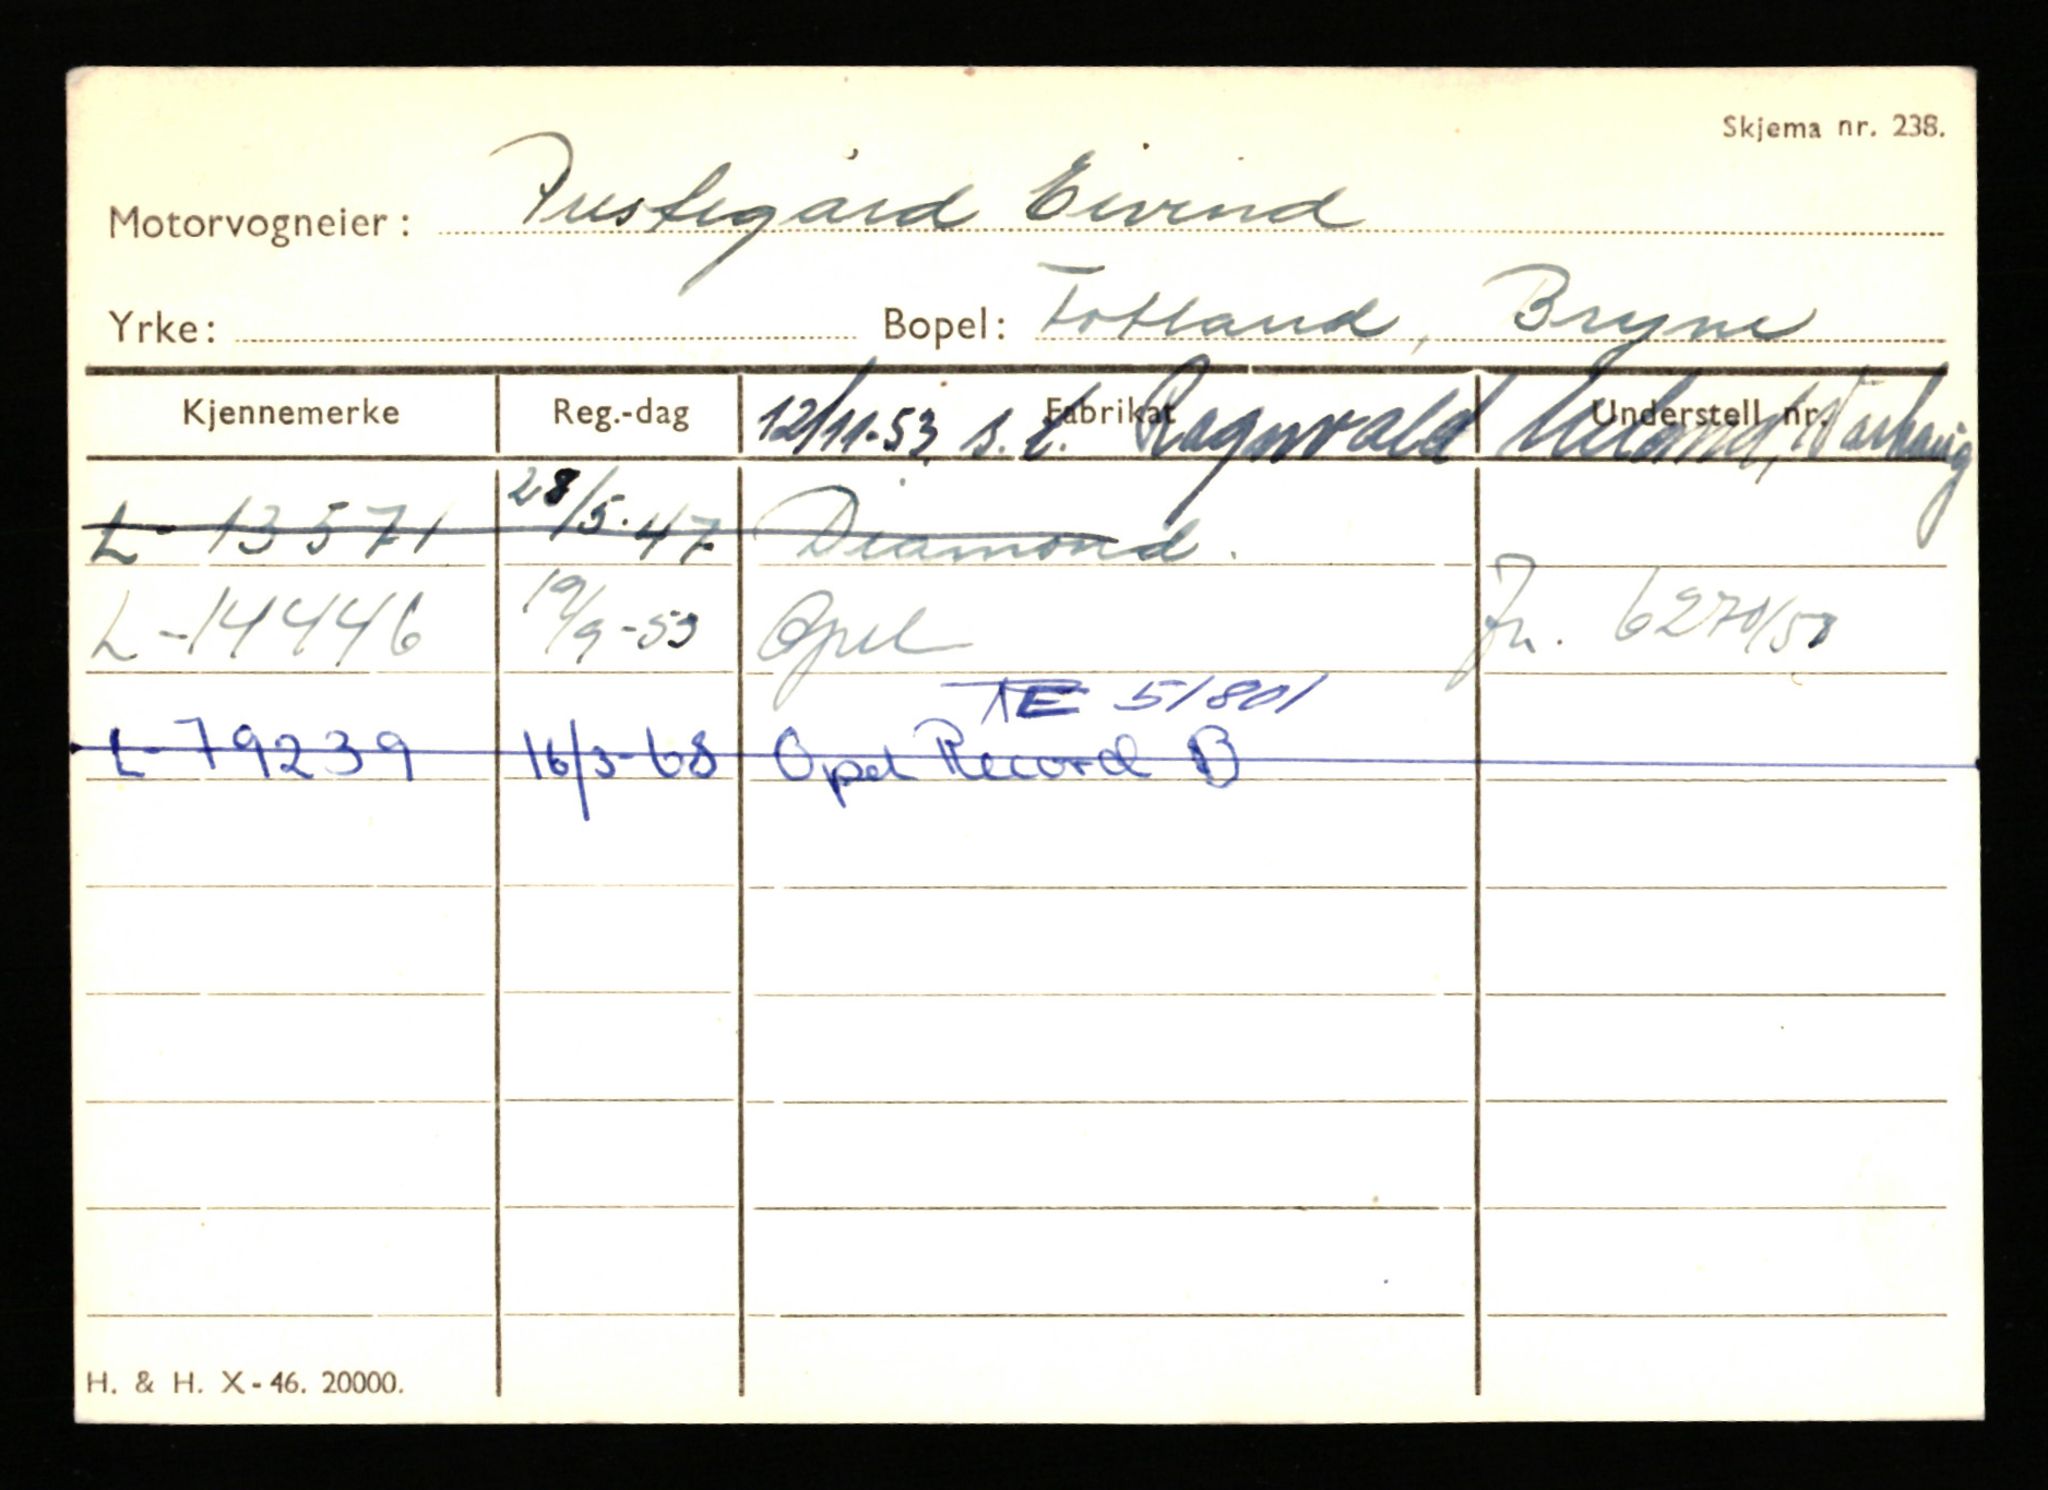 Skjema nr. 238.
Motorvogneier: Prestegård Eivind
Yrke: Bopel: Fotland, Bryne
Kjennemerke Reg.-dag Fabrikat Understell nr.
12/11-53 s. t. Ragnvald Ueland, Varhaug
L-13571 28/5.47 Diamond.
L-14446 19/9-53 Opel Jn. 6270/53
TE 51801
L-79239 16/3-68 Opel Record B
H. & H. X-46. 20000.